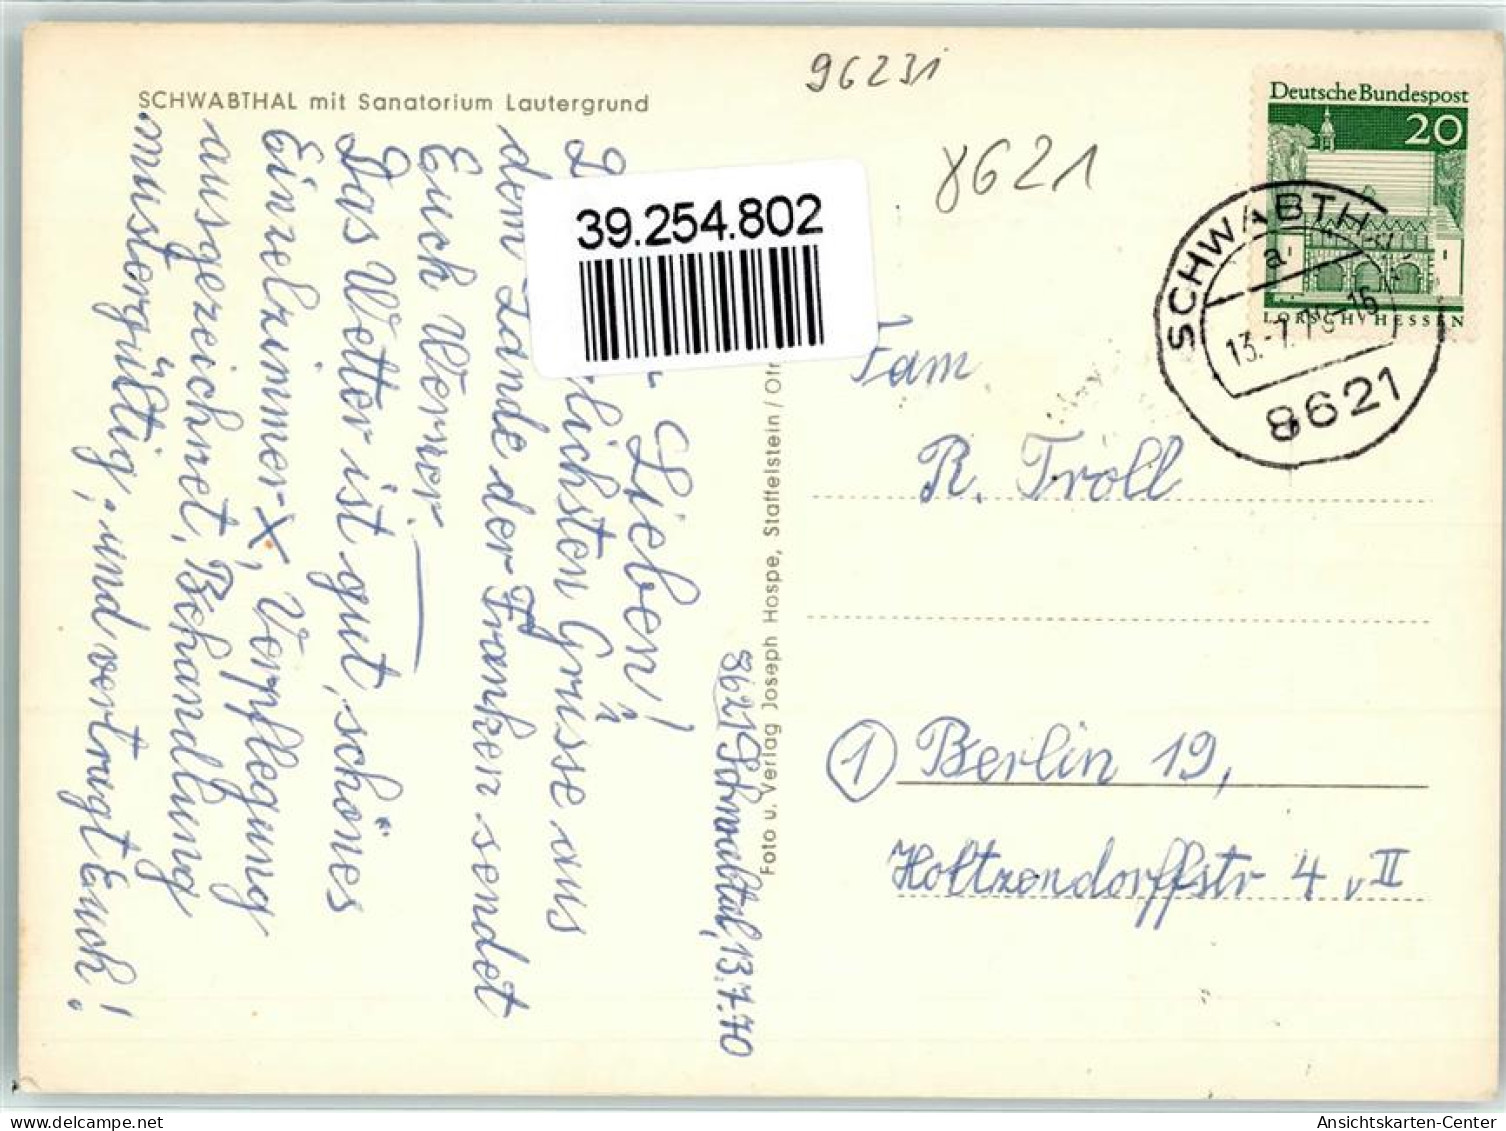 SCHWABTHAL mit Sanatorium Lautergrund
96231
8621
Deutsche Bundespost
20
LORSCH/HESSEN
SCHWABTH
a
13.-7.7 -16
8621
39.254.802
8621 Schwabtal, 13.7.70
Lieben!
lichsten Grüsse aus
dem Lande der Franken sendet
Euch Werner.
Das Wetter ist gut, schönes
Einzelzimmer X, Verpflegung
ausgezeichnet, Behandlung
mustergültig, und vertragt Euch!
Foto u. Verlag Joseph Hospe, Staffelstein/Ofr
Fam
R. Troll
1 Berlin 19,
Holtzendorffstr 4, II
oldthing.de
Ansichtskarten-Center